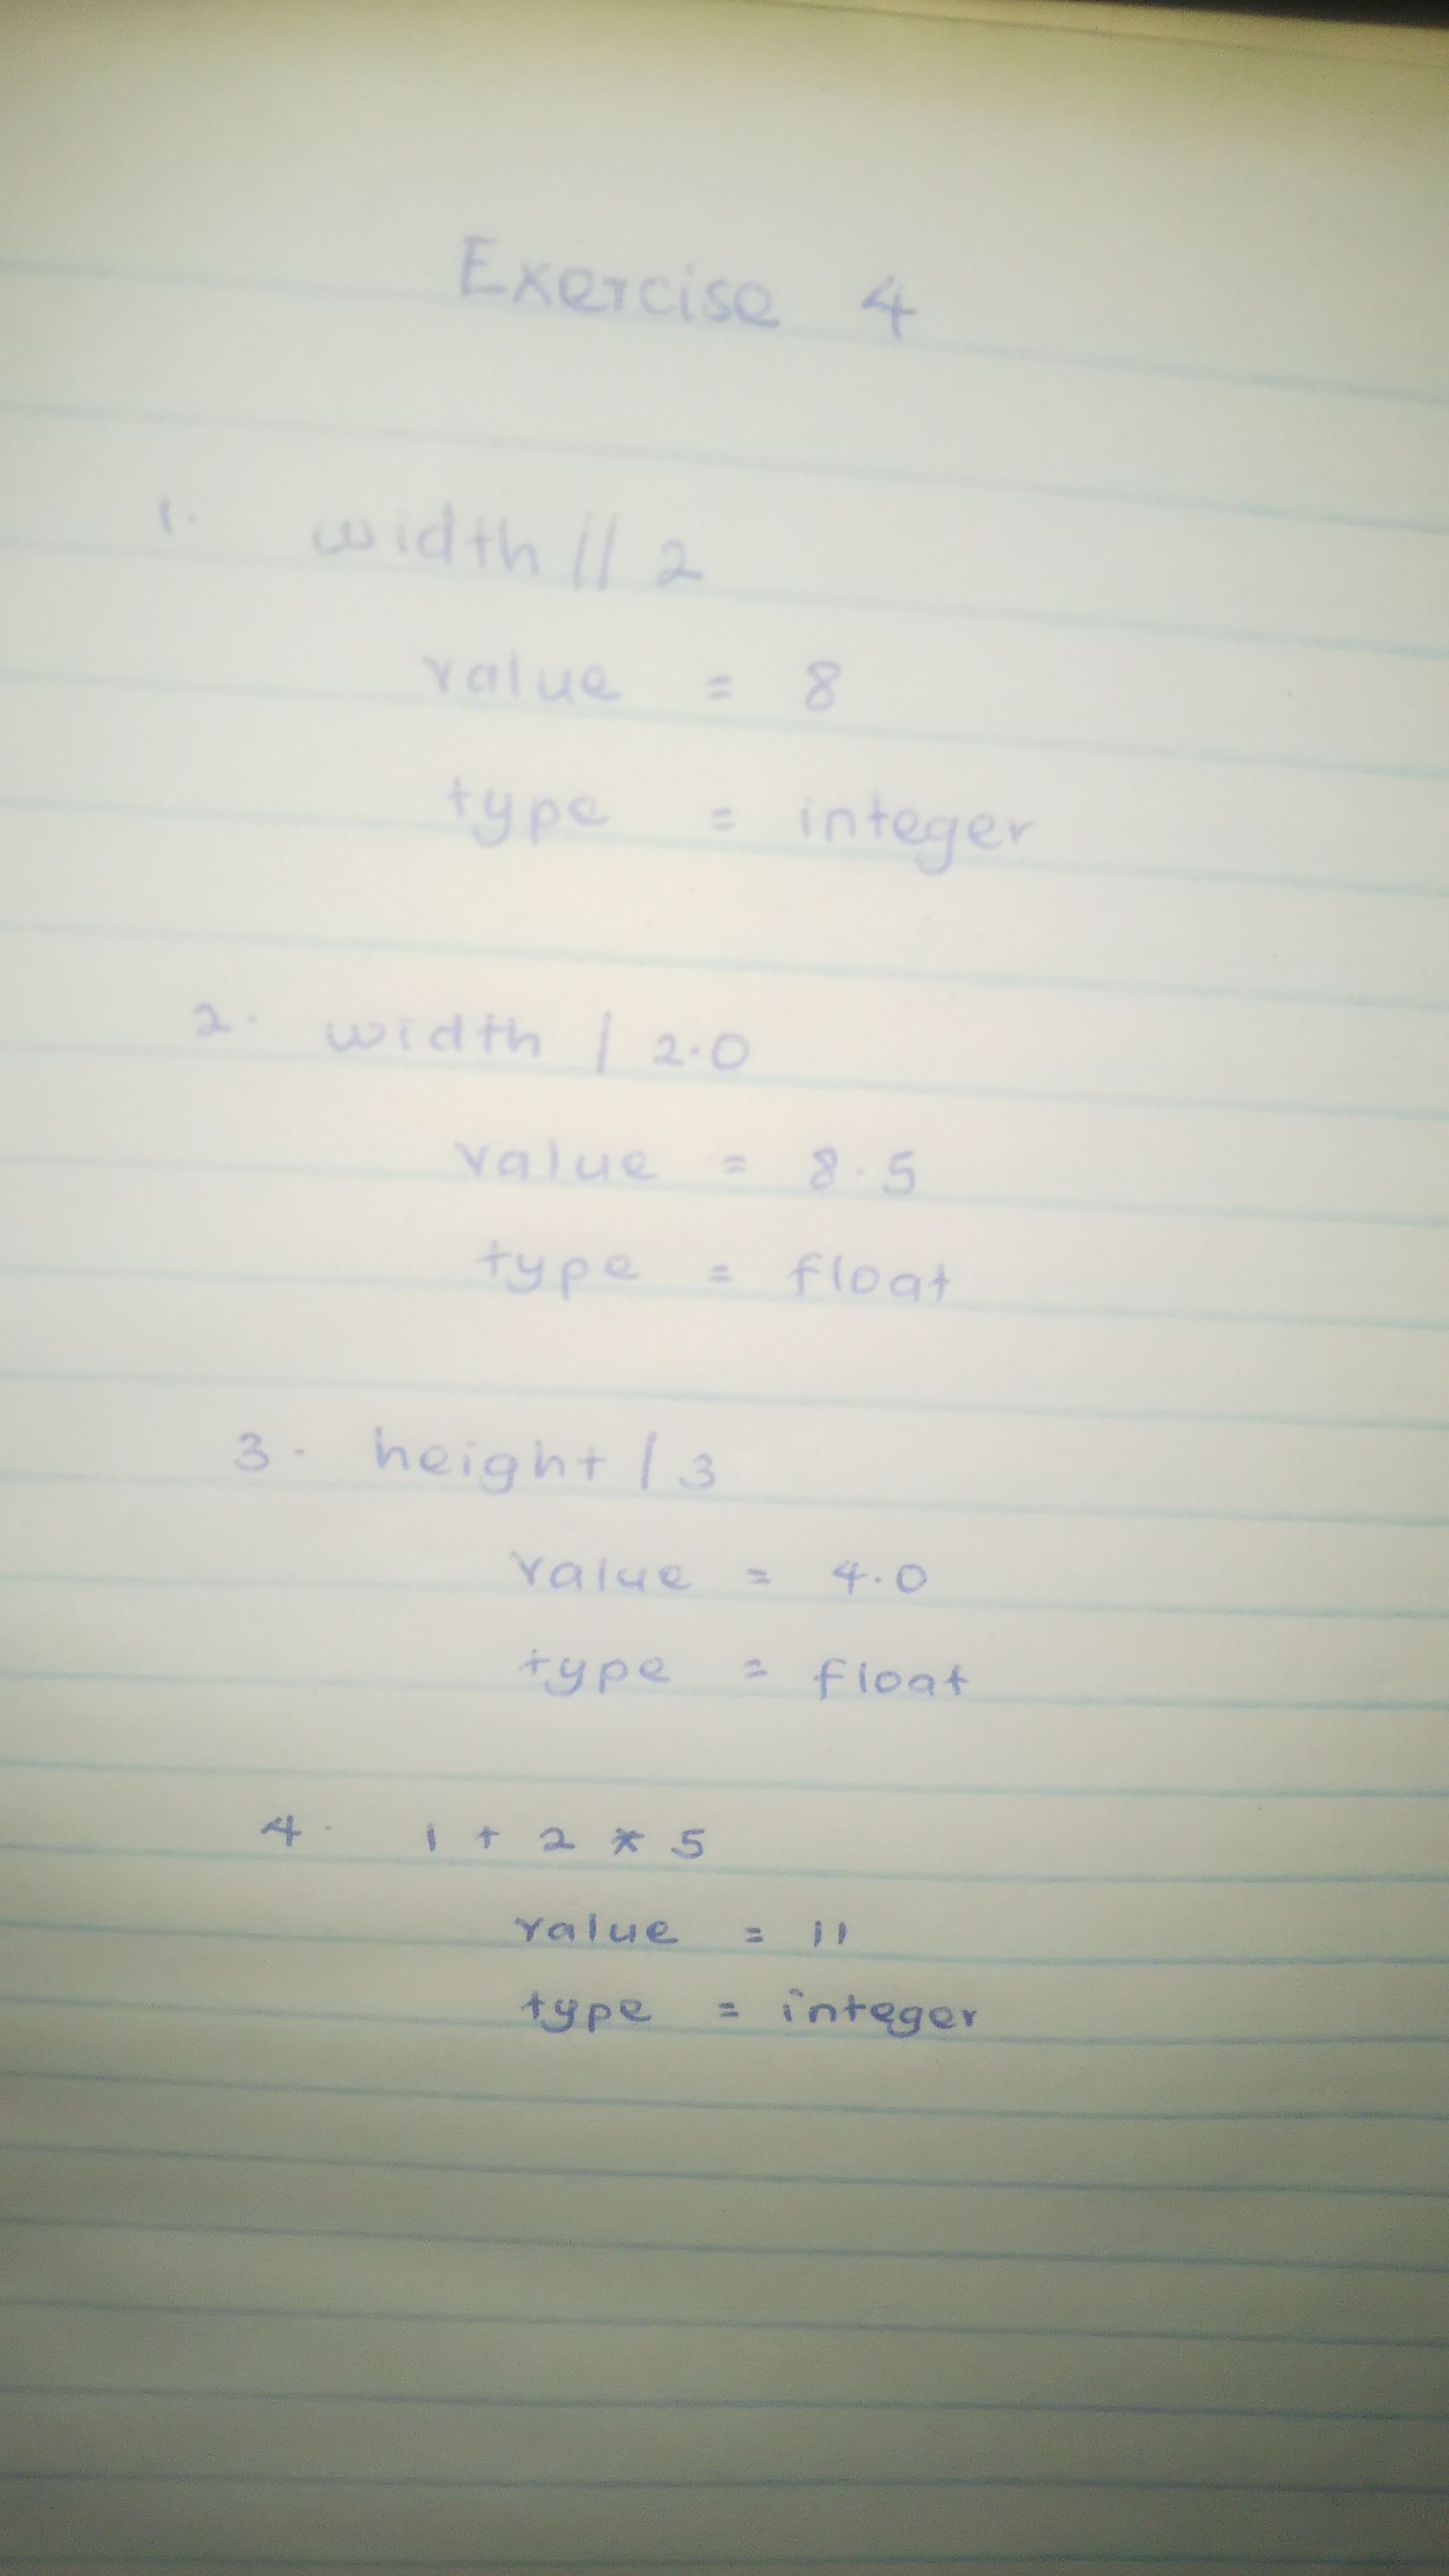 Exercise 4
1. width // 2
value = 8
type = integer
2. width / 2.0
value = 8.5
type = float
3. height / 3
value = 4.0
type = float
4. 1 + 2 * 5
value = 11
type = integer